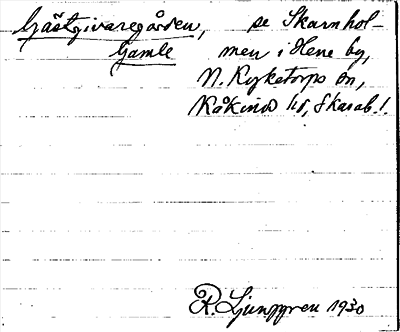 Gästgivaregården, se Skarnhol-
Gamle men i Hene by,
N. Kyketorps sn,
Kåkinds hd, Skarab. l.
R. Ljunggren 1930